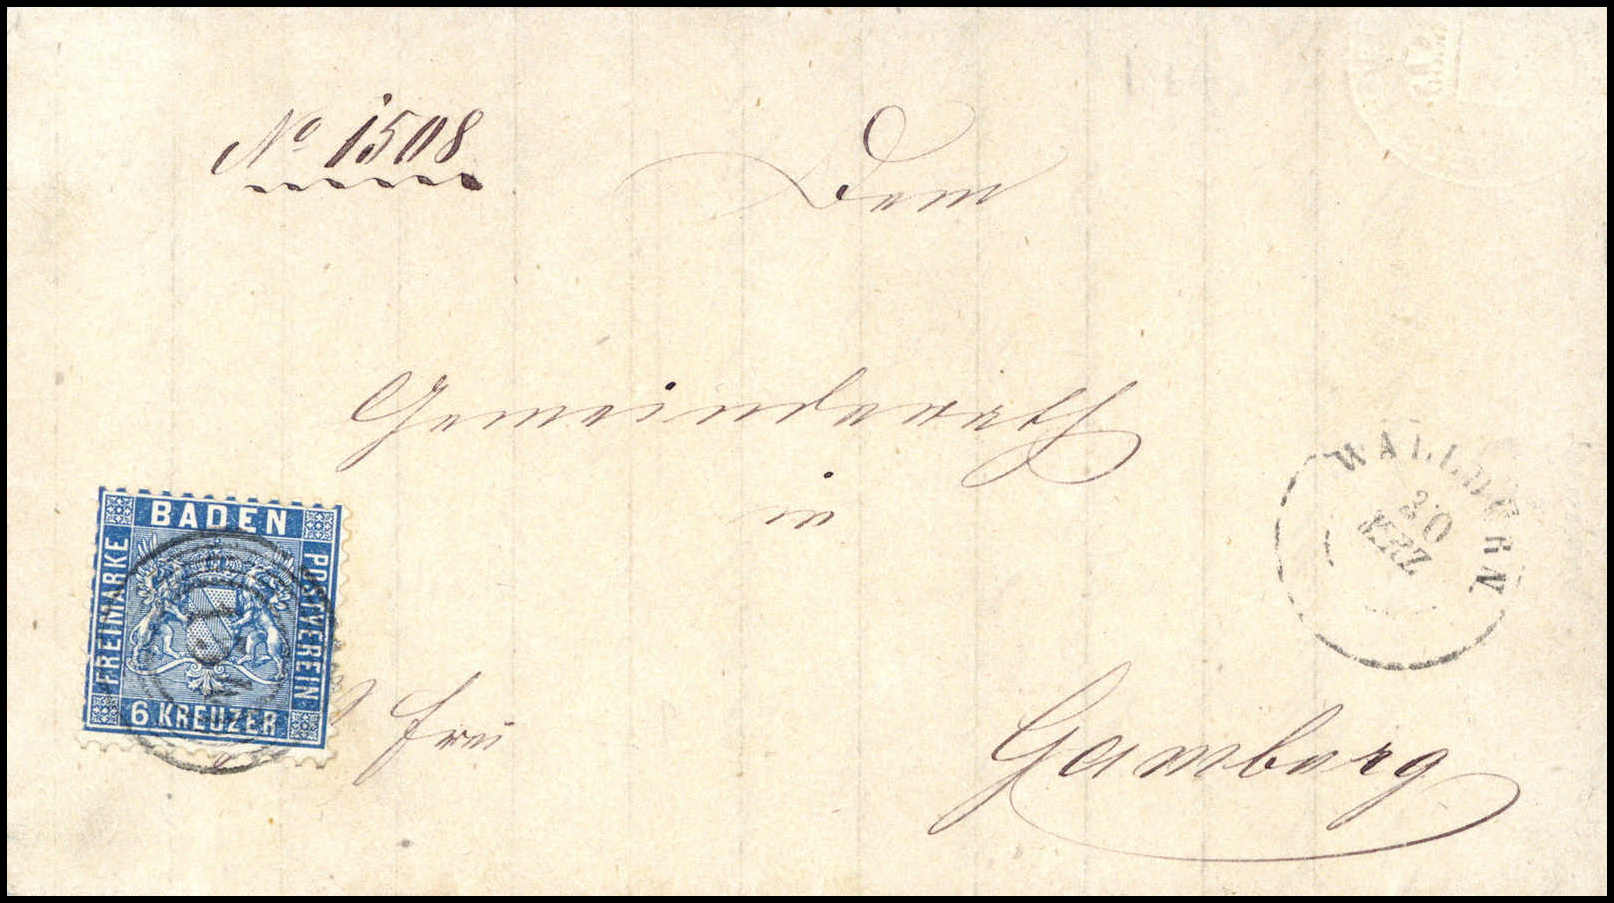 No 1508
Dem
Gemeinderath
in
Gamberg
frei
BADEN
FREIMARKE
POSTVEREIN
6 KREUZER
WALLDUERN
30
MRZ